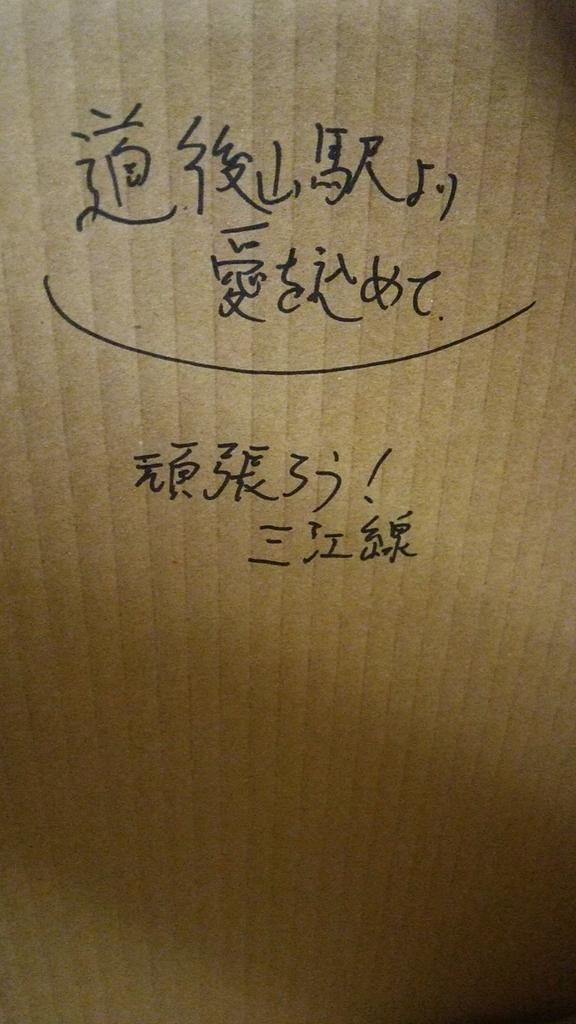 道後山駅より
愛を込めて.
頑張ろう!
三江線